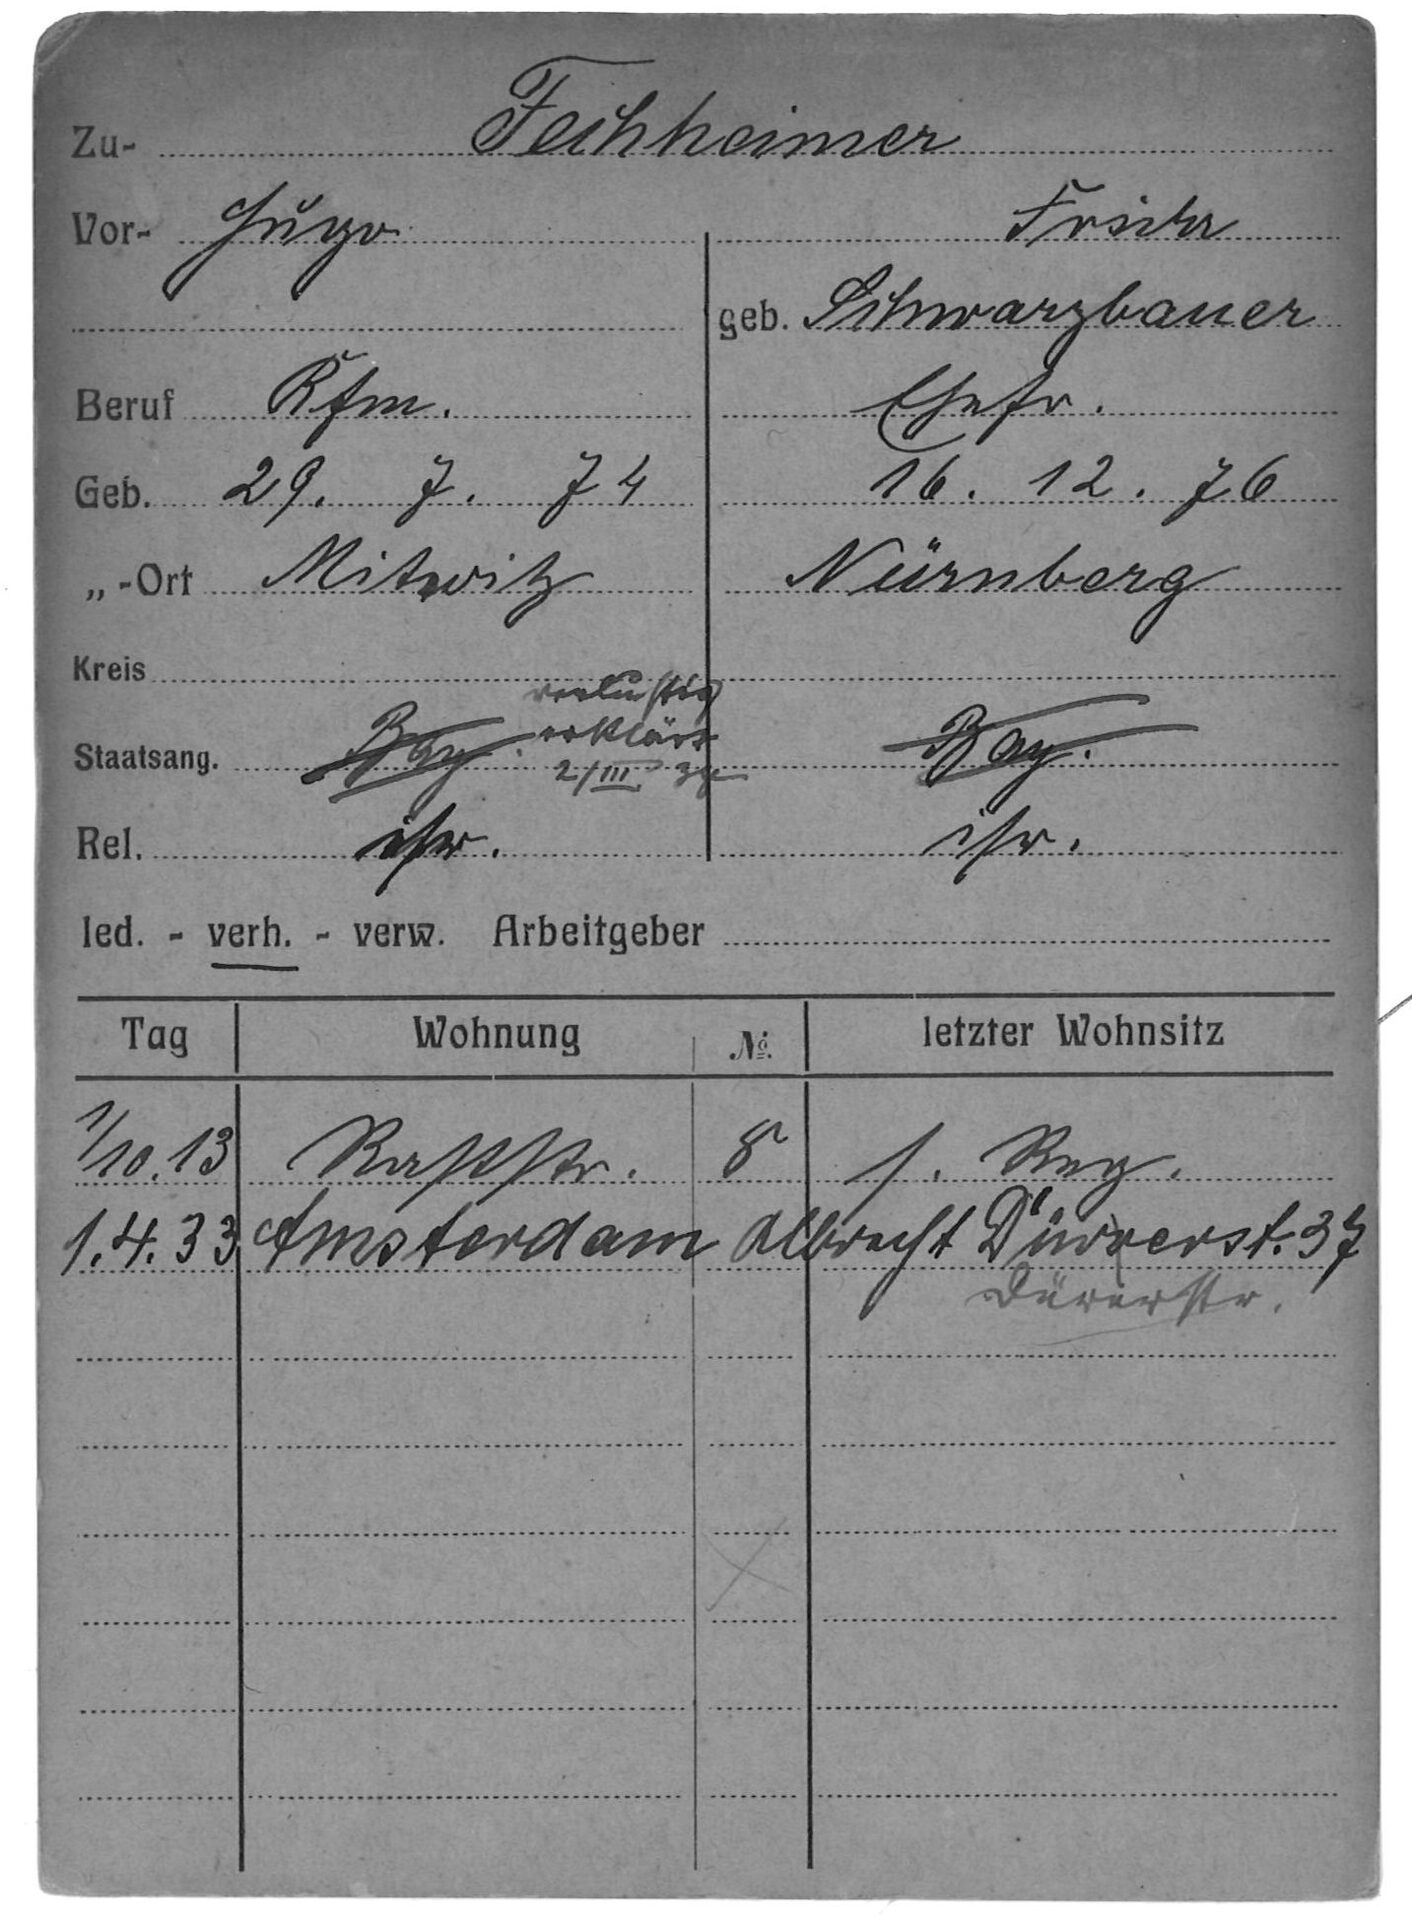 Zu- Fechheimer
Vor- Hugo Frieda
geb. Schwarzbauer
Beruf Kfm. Ehefr.
Geb. 29. 7. 74 16. 12. 76
„-Ort Mitwitz Nürnberg
Kreis
verlustig
Staatsang. Bay. erklärt Bay.
2/III 39
Rel. isr. isr.
led. - verh. - verw. Arbeitgeber
Tag Wohnung No. letzter Wohnsitz
1/10.13 8 s. Reg.
1.4.33 Amsterdam Albrecht Dürrerst. 37
Dürerstr.